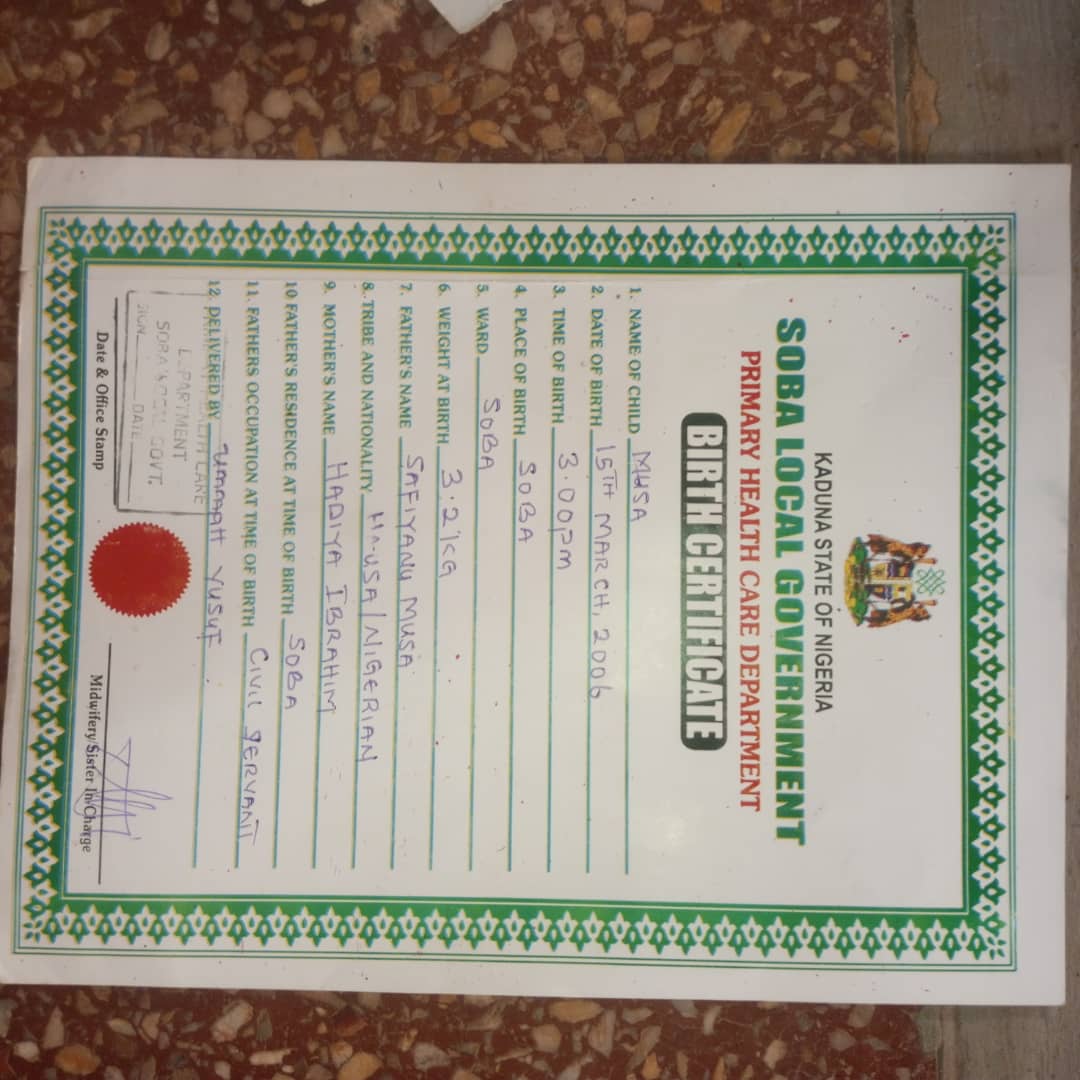 KADUNA STATE OF NIGERIA
SOBA LOCAL GOVERNMENT
PRIMARY HEALTH CARE DEPARTMENT
BIRTH CERTIFICATE
1. NAME OF CHILD MUSA
2. DATE OF BIRTH 15TH MARCH, 2006
3. TIME OF BIRTH 3.00pm
4. PLACE OF BIRTH SOBA
5. WARD SOBA
6. WEIGHT AT BIRTH 3.2kg
7. FATHER'S NAME SAFIYANU MUSA
8. TRIBE AND NATIONALITY HAUSA/NIGERIAN
9. MOTHER'S NAME HADIYA IBRAHIM
10 FATHER'S RESIDENCE AT TIME OF BIRTH SOBA
11. FATHERS OCCUPATION AT TIME OF BIRTH CIVIL SERVANT
12. DELIVERED BY YUSUF
SOBA LOCAL GOVT.
SIGN DATE
Date & Office Stamp
Midwifery/Sister In-Charge